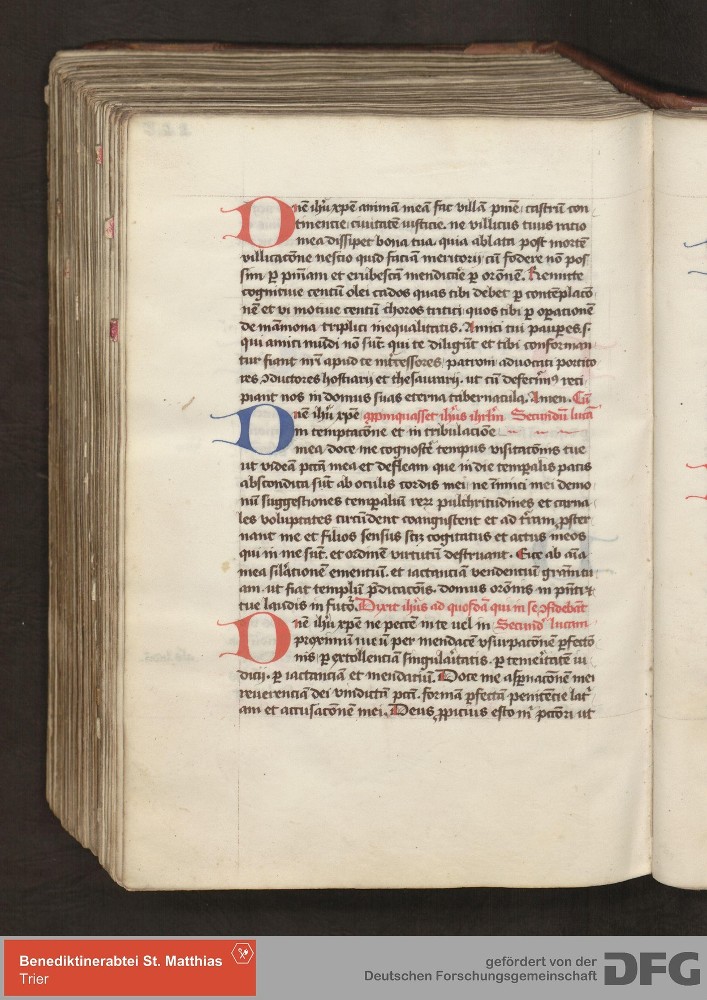 Dn̄e ihū xpē animā meā fac villā pnīe castrū con
tinencie ciuitatē iusticie. ne villicus tuus racio
mea dissipet bona tua. quia ablata post mortē
villicacōne nescio quid faciā meritorū cū fodere nō pos
sim ꝑ pnīam et erubescā mendicare ꝑ orōnē. Remitte
cognitiue centū olei cados quas tibi debet ꝑ contēplacō
nē et vi motiue centū choros tritici quos tibi ꝑ oꝑationē
de māmona triplici inequalitatis. Amici tui pauꝑes .s.
qui amici mūdi nō sūt. qui te diligūt et tibi conforman
tur fiant mī apud te intcessores patroni aduocati portito
res ꝯductores hostiarii et thesaurarii. ut cū defecerimꝰ reci
piant nos in domus suas eterna tabernacula. Amen. Cū
Dn̄e ihū xpē apꝓpinquasset ihūs ihrlm̄ Secundū lucā
in temptacōne et in tribulacione
mea doce me cognoscere tempus visitacōnis tue
ut videā pctā mea et defleam que in die temꝑalis pacis
abscondita sūt ab oculis cordis mei ne inīmici mei demo
nū suggestiones temꝑaliū rerū pulchritudines et carna
les voluptates circūdent coangustent et ad terram ꝓster
nant me et filios sensus scꝫ cogitatus et actus meos
qui in me sūt. et ordinē virtutū destruant. Eice ab aīa
mea simulationē ementiū. et iactanciā vendentiū
am. ut fiat templū p̄dicacōnis. domus orōnis in
tue laudis in futuro. Dixit ihūs ad quosdā qui in se ꝯfidebāt
Dn̄e ihū xpē ne peccē in te vel in Secundū lucam
proximū meū per mendacē vsurpacōnē ꝑfectō
nis ꝑ extollenciā singularitatis. ꝑ temeritatē iu
dicii. ꝑ iactanciā et mendaciū. Doce me aspnacōnē mei
reuerenciā dei vindictā pctī. formā ꝑfectā penitēcie latri
am et accusacōnē mei. Deus ꝓpicius esto mī pctōri ut
Benediktinerabtei St. Matthias
Trier
gefördert von der
Deutschen Forschungsgemeinschaft
DFG